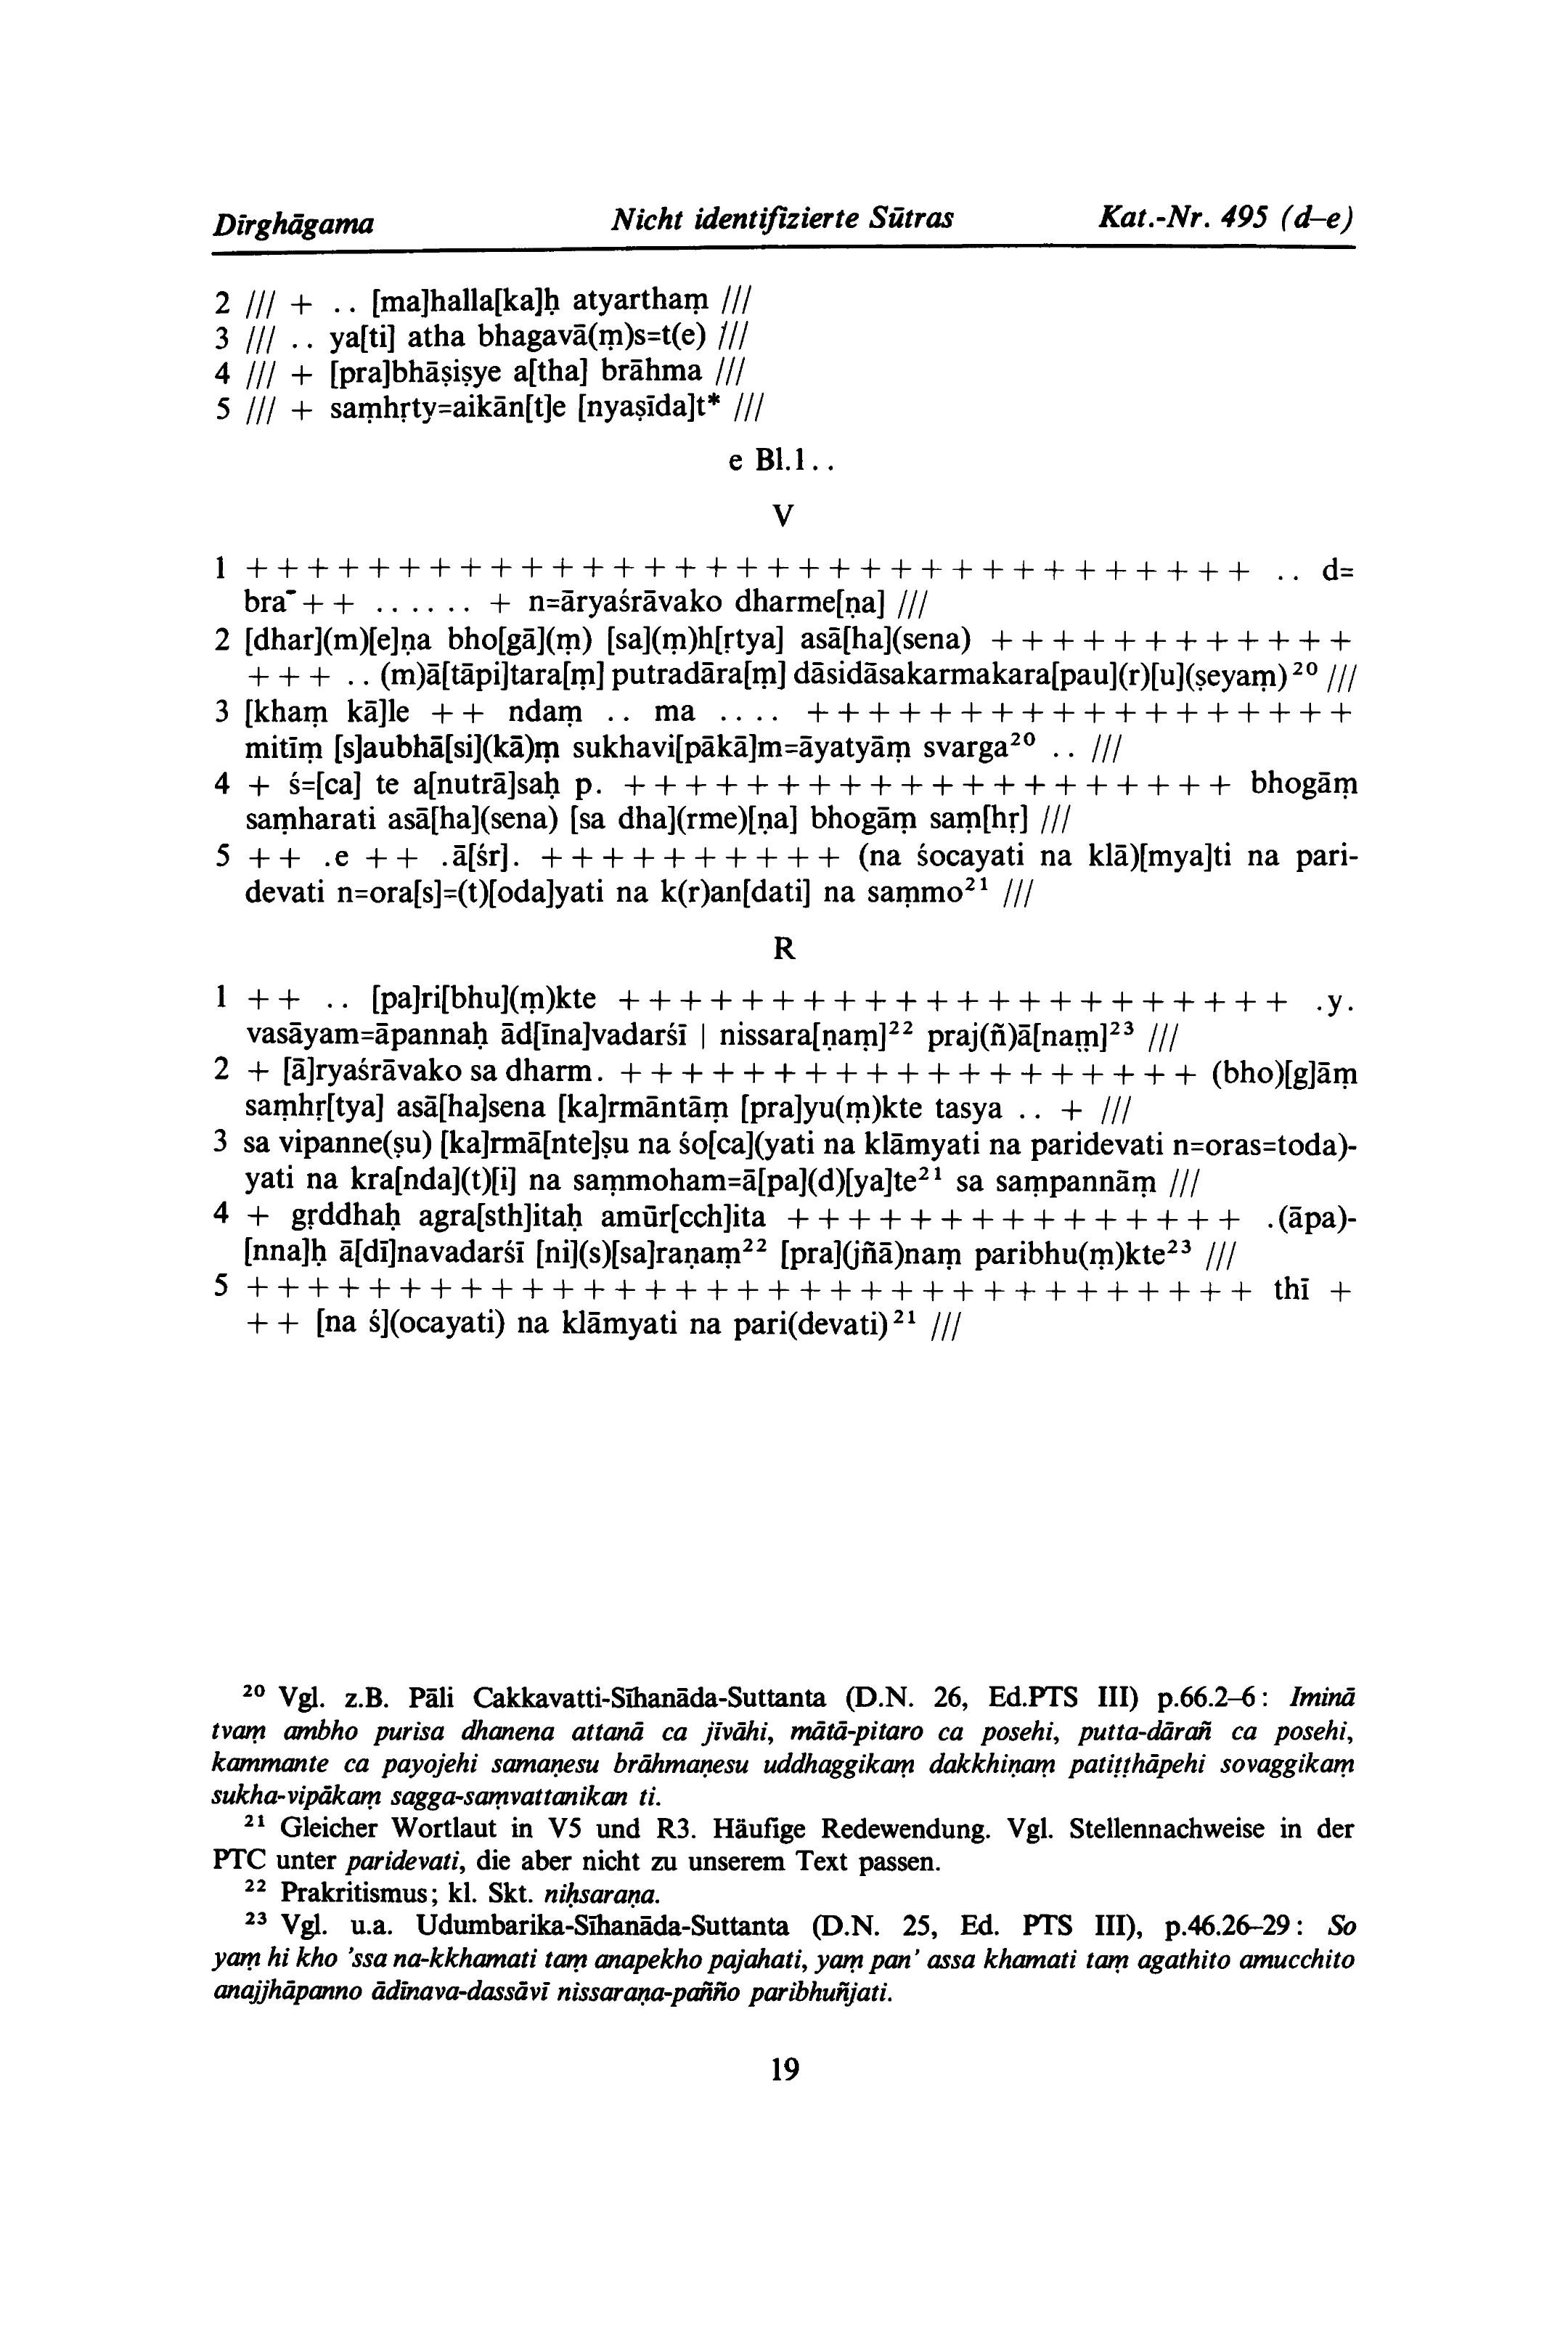 Dīrghāgama Nicht identifizierte Sūtras Kat.-Nr. 495 (d–e)
2 /// + .. [ma]halla[ka]ḥ atyarthaṃ ///
3 /// .. ya[ti] atha bhagavā(ṃ)s=t(e) ///
4 /// + [pra]bhāṣiṣye a[tha] brāhma ///
5 /// + saṃhṛty=aikān[t]e [nyaṣīda]t* ///
e Bl.1..
V
1 + + + + + + + + + + + + + + + + + + + + + + + + + + + + + + + + + .. d=
bra¯ + + ...... + n=āryaśrāvako dharme[ṇa] ///
2 [dhar](m)[e]ṇa bho[gā](ṃ) [sa](ṃ)h[ṛtya] asā[ha](sena) + + + + + + + + + + + +
+ + + .. (m)ā[tāpi]tara[ṃ] putradāra[ṃ] dāsidāsakarmakara[pau](r)[u](ṣeyaṃ)²⁰ ///
3 [khaṃ kā]le + + ndaṃ .. ma .... + + + + + + + + + + + + + + + + + +
mitīṃ [s]aubhā[si](kā)ṃ sukhavi[pākā]m=āyatyāṃ svarga²⁰ .. ///
4 + ś=[ca] te a[nutrā]saḥ p. + + + + + + + + + + + + + + + + + + + + bhogāṃ
saṃharati asā[ha](sena) [sa dha](rme)[ṇa] bhogāṃ saṃ[hṛ] ///
5 + + .e + + .ā[śr]. + + + + + + + + + + (na śocayati na klā)[mya]ti na pari-
devati n=ora[s]=(t)[oda]yati na k(r)an[dati] na saṃmo²¹ ///
R
1 + + .. [pa]ri[bhu](ṃ)kte + + + + + + + + + + + + + + + + + + + + + + .y.
vasāyam=āpannaḥ ād[īna]vadarśī | nissara[ṇaṃ]²² praj(ñ)ā[naṃ]²³ ///
2 + [ā]ryaśrāvako sa dharm. + + + + + + + + + + + + + + + + + + + (bho)[g]āṃ
saṃhṛ[tya] asā[ha]sena [ka]rmāntāṃ [pra]yu(ṃ)kte tasya .. + ///
3 sa vipanne(ṣu) [ka]rmā[nte]ṣu na śo[ca](yati na klāmyati na paridevati n=oras=toda)-
yati na kra[nda](t)[i] na saṃmoham=ā[pa](d)[ya]te²¹ sa saṃpannāṃ ///
4 + gṛddhaḥ agra[sth]itaḥ amūr[cch]ita + + + + + + + + + + + + + + + .(āpa)-
[nna]ḥ ā[dī]navadarśī [ni](s)[sa]raṇaṃ²² [pra](jñā)naṃ paribhu(ṃ)kte²³ ///
5 + + + + + + + + + + + + + + + + + + + + + + + + + + + + + + + + + thī +
+ + [na ś](ocayati) na klāmyati na pari(devati)²¹ ///
²⁰ Vgl. z.B. Pāli Cakkavatti-Sīhanāda-Suttanta (D.N. 26, Ed.PTS III) p.66.2–6: Iminā
tvaṃ ambho purisa dhanena attanā ca jīvāhi, mātā-pitaro ca posehi, putta-dārañ ca posehi,
kammante ca payojehi samaṇesu brāhmaṇesu uddhaggikaṃ dakkhiṇaṃ patiṭṭhāpehi sovaggikaṃ
sukha-vipākaṃ sagga-saṃvattanikan ti.
²¹ Gleicher Wortlaut in V5 und R3. Häufige Redewendung. Vgl. Stellennachweise in der
PTC unter paridevati, die aber nicht zu unserem Text passen.
²² Prakritismus; kl. Skt. niḥsaraṇa.
²³ Vgl. u.a. Udumbarika-Sīhanāda-Suttanta (D.N. 25, Ed. PTS III), p.46.26–29: So
yaṃ hi kho ’ssa na-kkhamati taṃ anapekho pajahati, yaṃ pan’ assa khamati taṃ agathito amucchito
anajjhāpanno ādīnava-dassāvī nissaraṇa-pañño paribhuñjati.
19